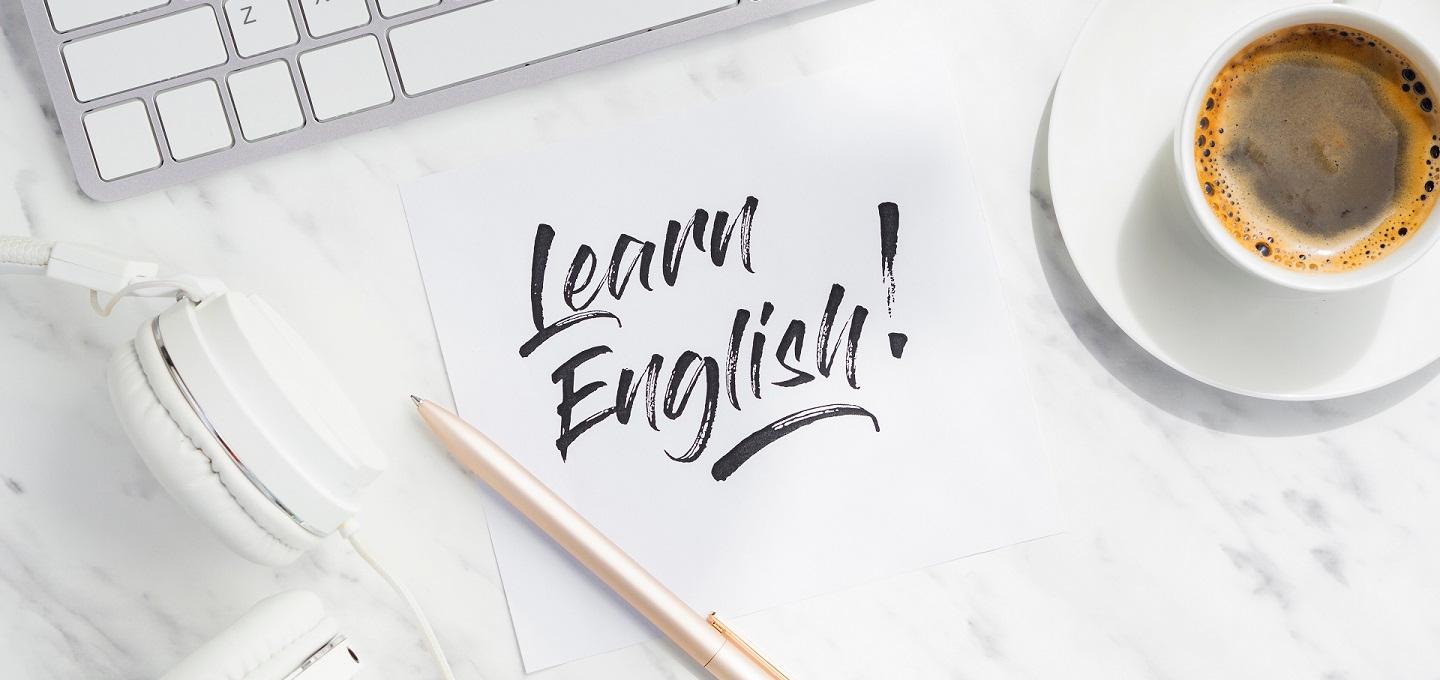 Z X
Learn
English!